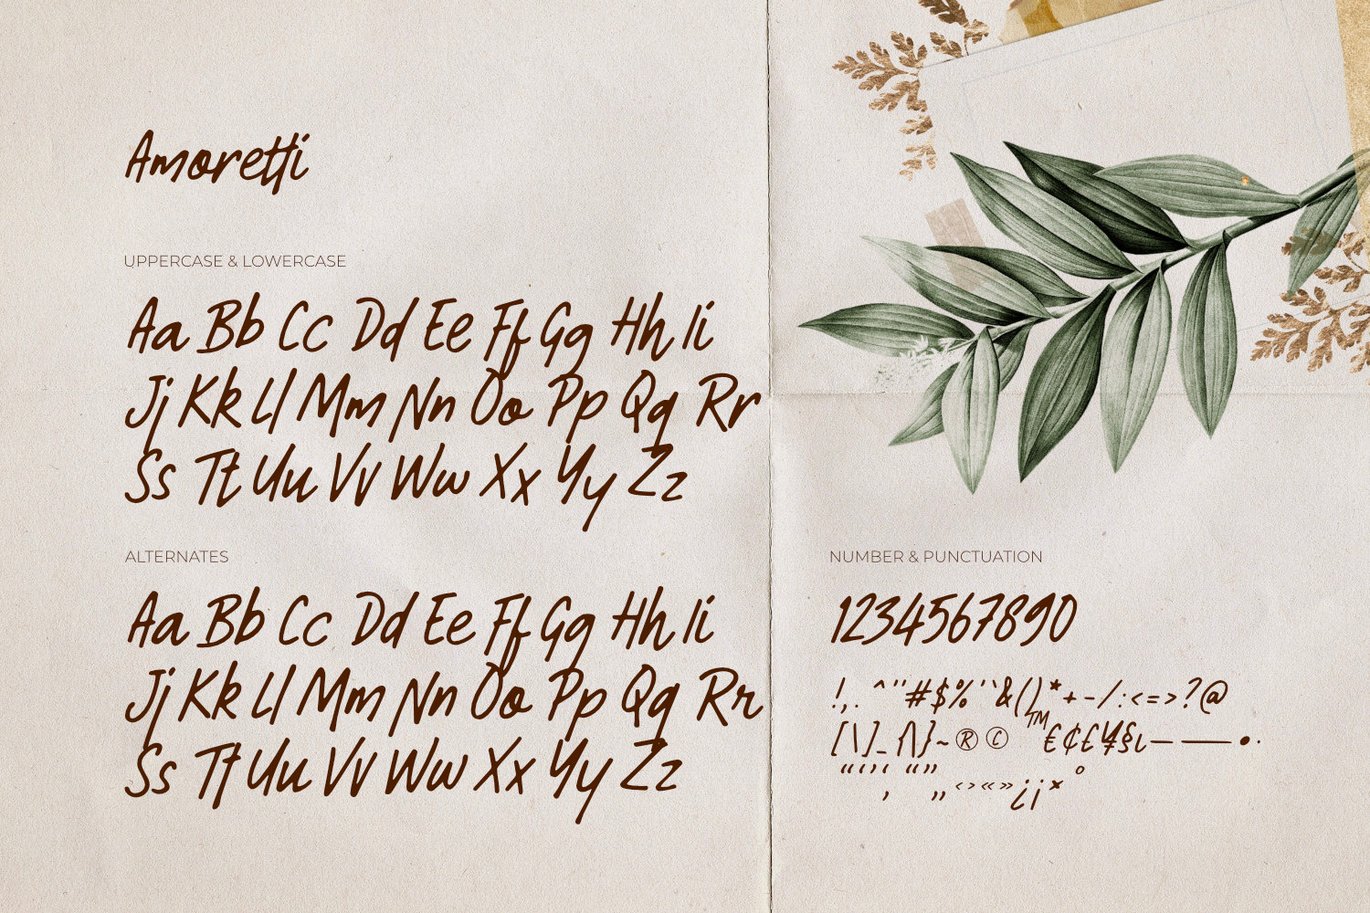 Amoretti
UPPERCASE & LOWERCASE
Aa Bb Cc Dd Ee Ff Gg Hh Ii
Jj Kk Ll Mm Nn Oo Pp Qq Rr
Ss Tt Uu Vv Ww Xx Yy Zz
ALTERNATES
Aa Bb Cc Dd Ee Ff Gg Hh Ii
Jj Kk Ll Mm Nn Oo Pp Qq Rr
Ss Tt Uu Vv Ww Xx Yy Zz
NUMBER & PUNCTUATION
1234567890
!,. ^"#$%'`&()*+-/:<=>?@
[\]_{|}~®© ™ €¢£¥§ι—— •·
“‘’‘ “”
‚ „‹›«»¿¡× °